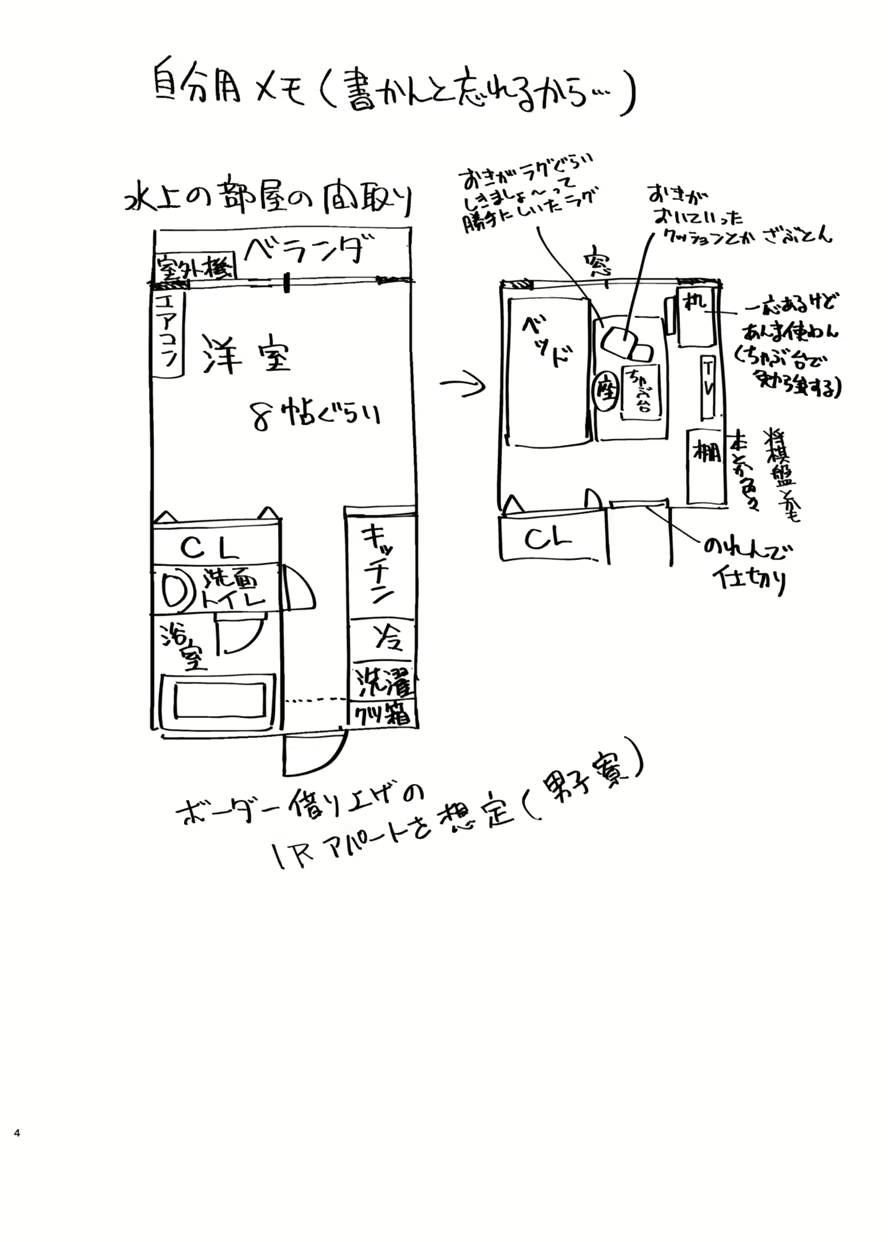 自分用メモ(書かんと忘れるから…)
水上の部屋の間取り
ベランダ
室外機
エアコン
洋室
8帖ぐらい
CL
洗面
トイレ
浴室
キッチン
冷
洗濯
クツ箱
おきがラグぐらい
しきましょ〜って
勝手にしいたラグ
おきが
おいていった
クッションとかざぶとん
窓
ベッド
机
座
ちゃぶ台
TV
棚
一応あるけど
あんま使わん
(ちゃぶ台で
勉強する)
将棋盤とかも
本とか色々
CL
のれんで
仕切り
ボーダー借り上げの
1Rアパートを想定(男子寮)
4